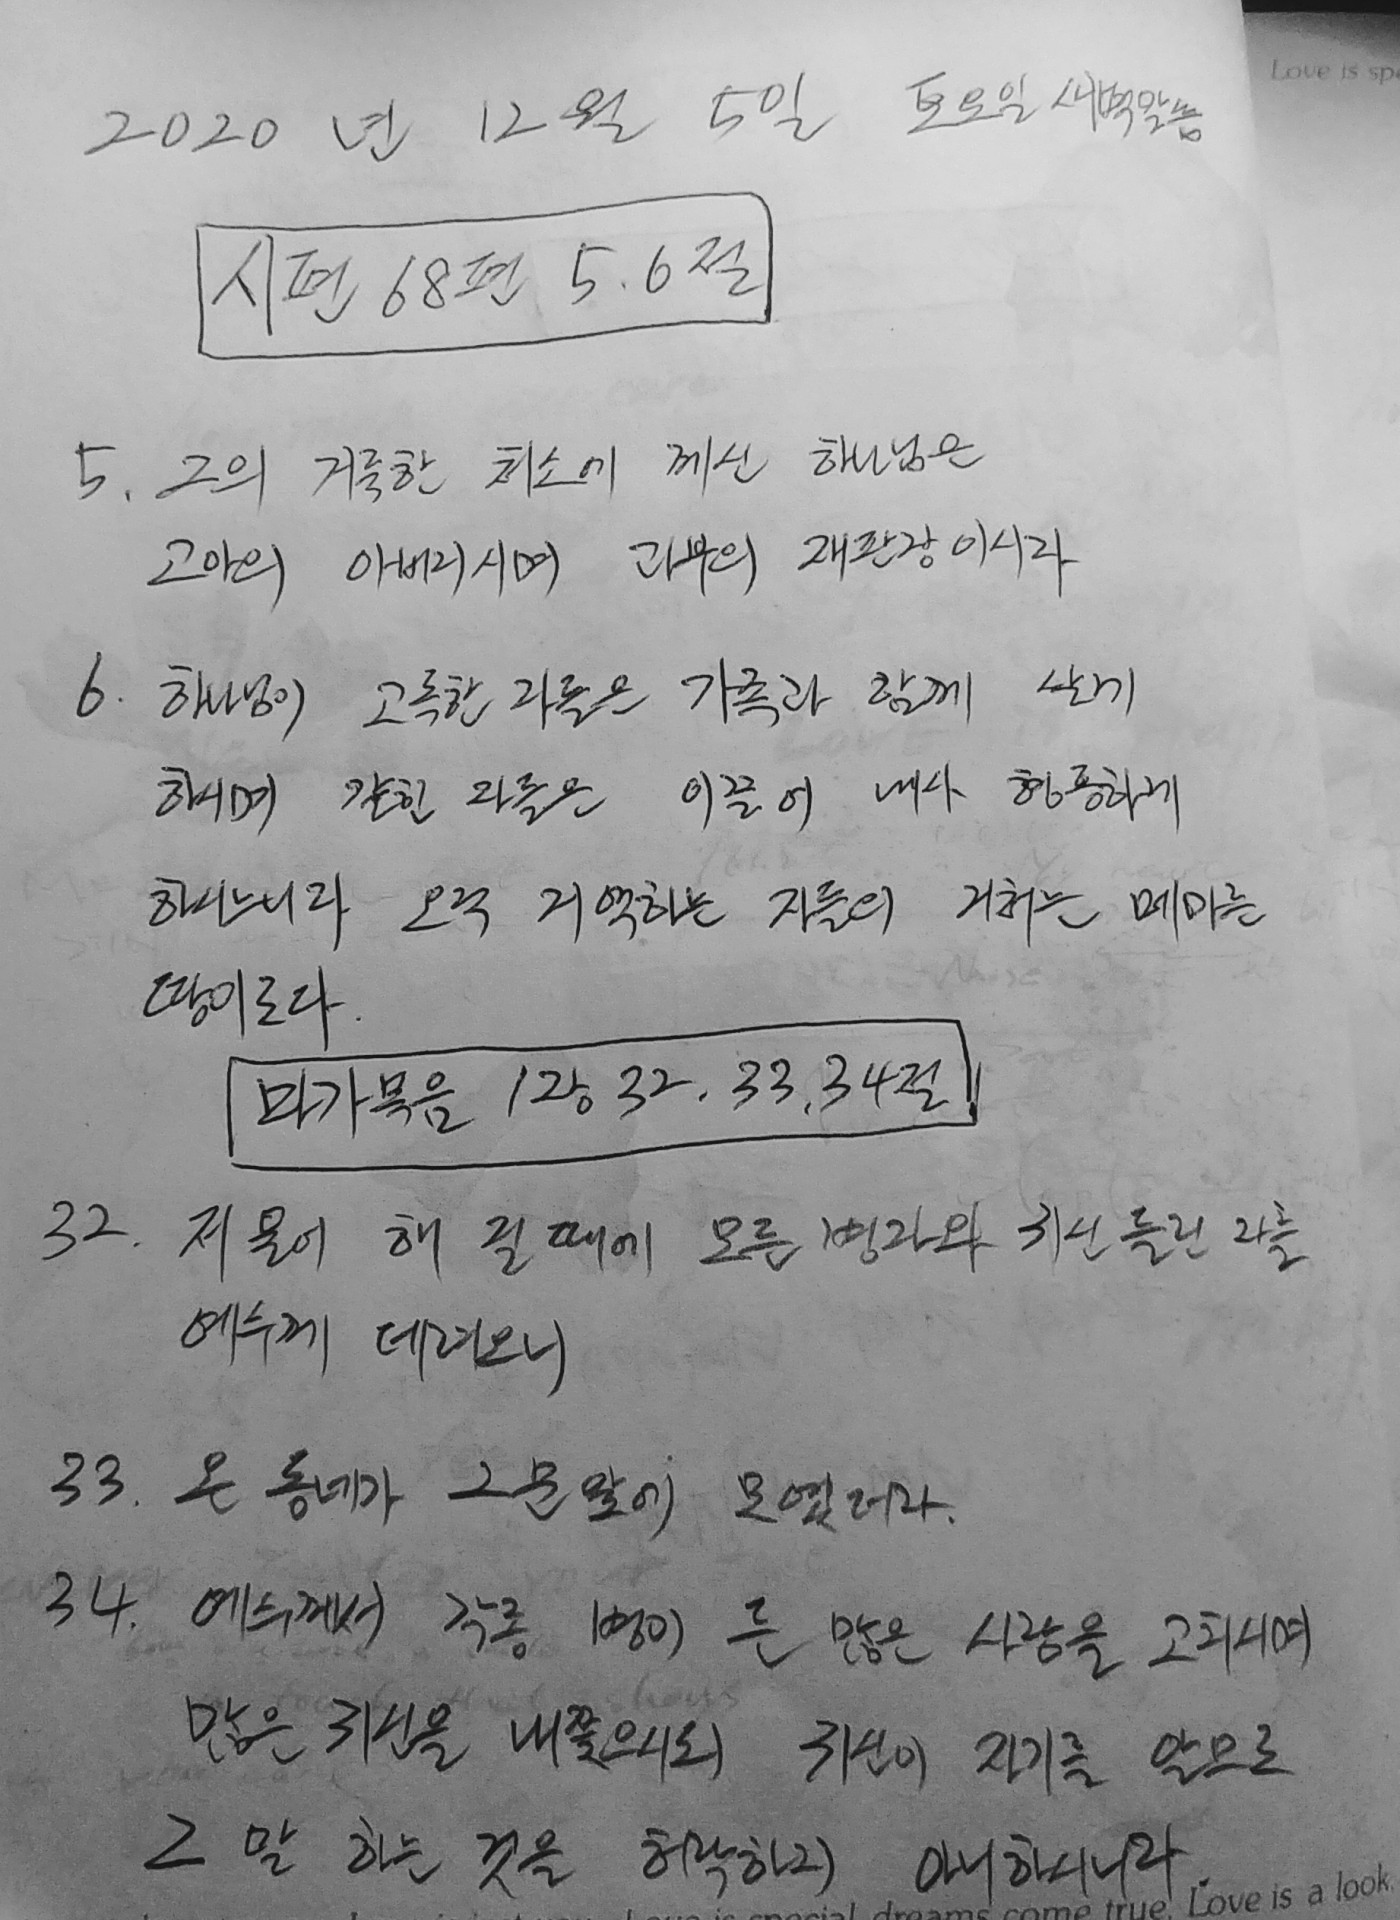 Love is spe
2020 년 12월 5일 토요일 새벽말씀
시편 68편 5.6절
5. 그의 거룩한 처소에 계신 하나님은
고아의 아버지시며 과부의 재판장이시라
6. 하나님이 고독한 자들은 가족과 함께 살게
하시며 갇힌 자들은 이끌어 내사 형통하게
하시느니라 오직 거역하는 자들의 거처는 메마른
땅이로다.
마가복음 1장 32. 33.34절
32. 저물어 해 질 때에 모든 병자와 귀신 들린 자를
예수께 데려오니
33. 온 동네가 그 문 앞에 모였더라.
34. 예수께서 각종 병이 든 많은 사람을 고치시며
많은 귀신을 내쫓으시되 귀신이 자기를 알므로
그 말 하는 것을 허락하지 아니하시니라.
is special dreams come true. Love is a look.